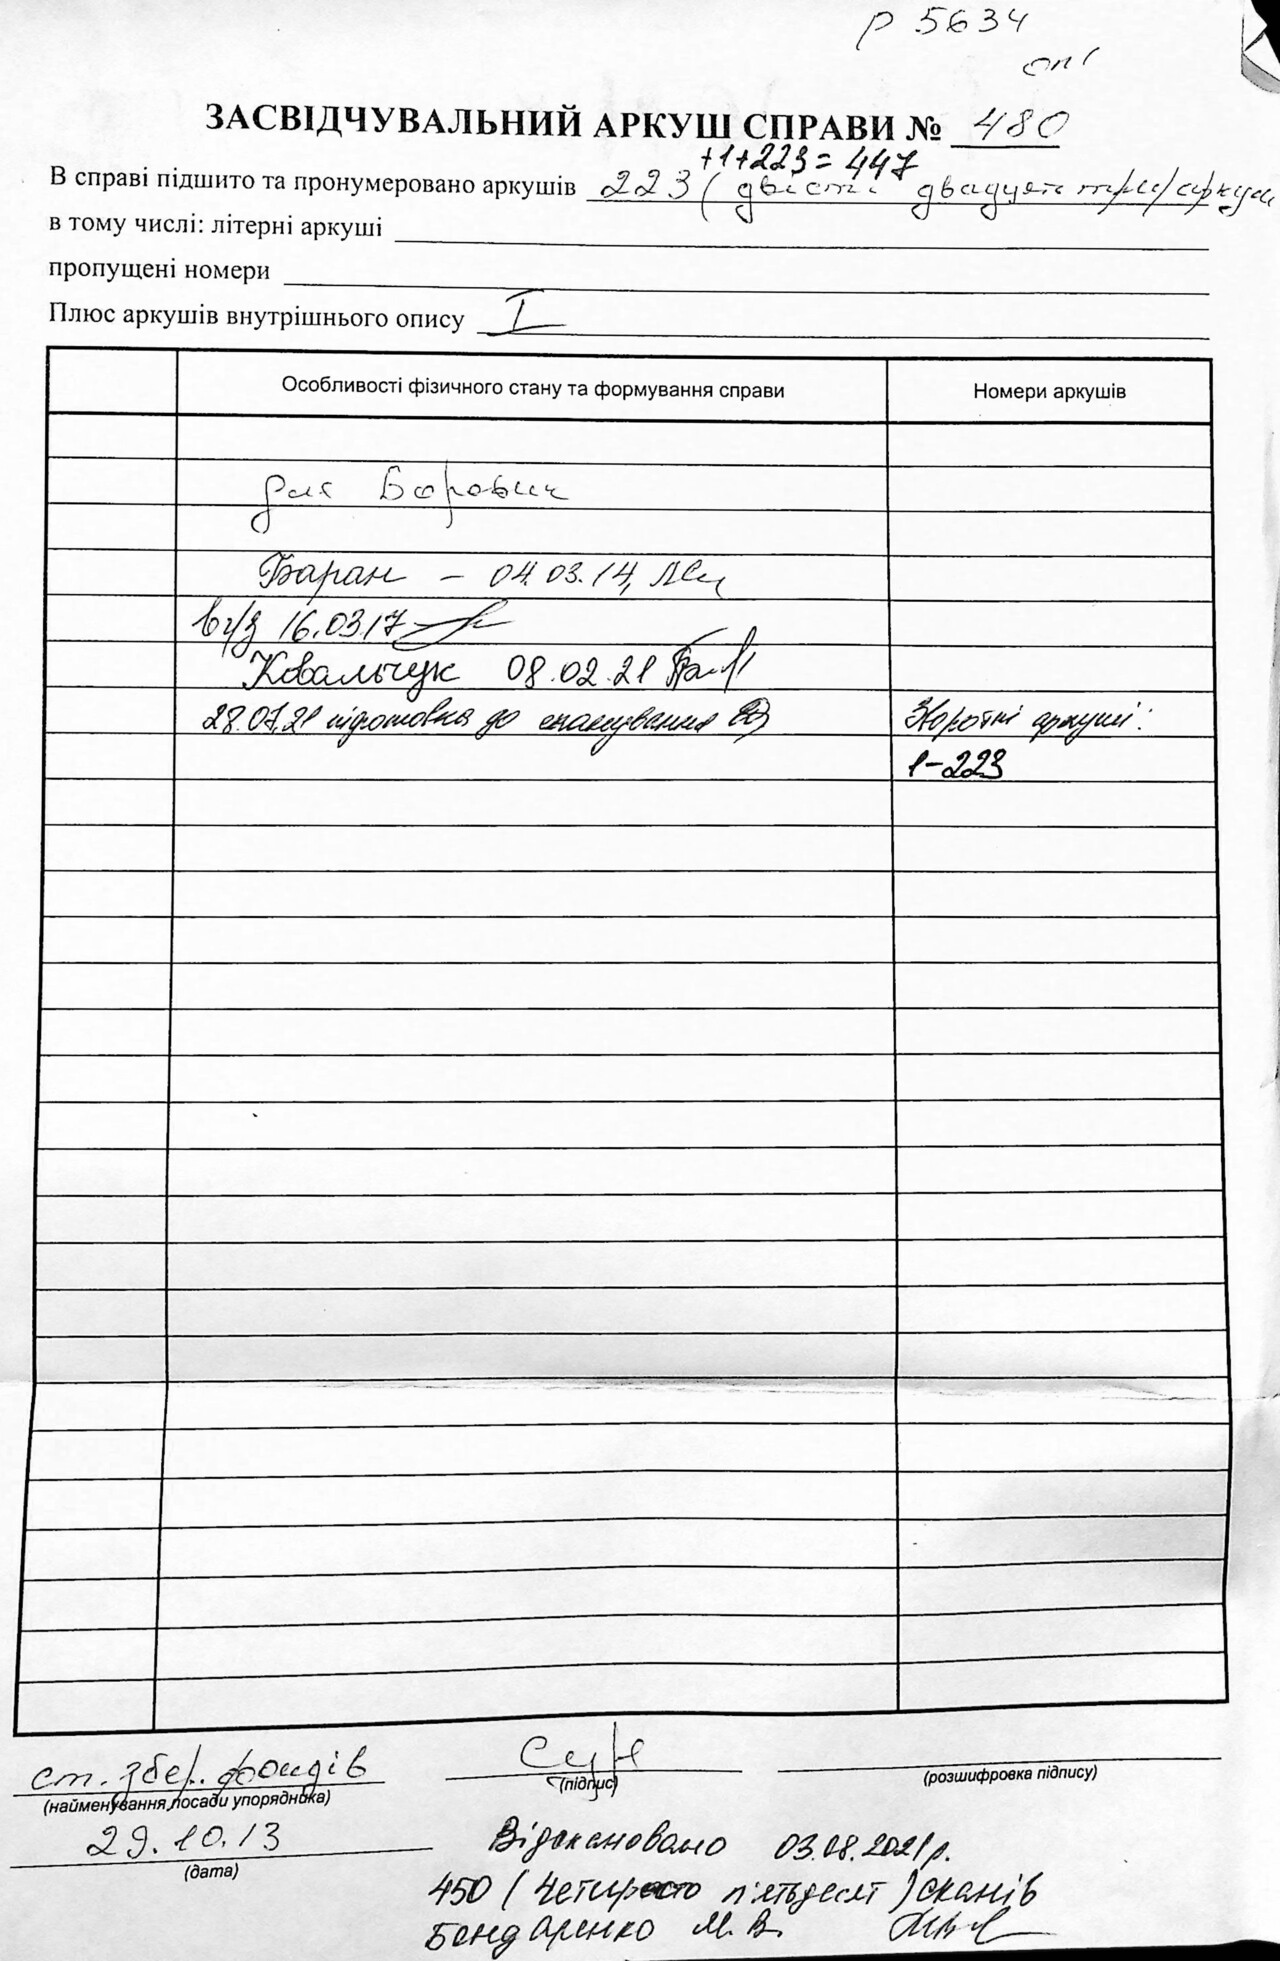 р 5634
оп 1
ЗАСВІДЧУВАЛЬНИЙ АРКУШ СПРАВИ № 480
+1+223=447
В справі підшито та пронумеровано аркушів 223 (двісті двадцять три) аркуш
в тому числі: літерні аркуші
пропущені номери
Плюс аркушів внутрішнього опису I
Особливості фізичного стану та формування справи
Номери аркушів
для Борович
Баран – 04.03.14,
в/з 16.03.17
Ковальчук 08.02.21
28.07.21 підготовка до сканування
Звороти аркушів:
1-223
ст. збер. фондів
(найменування посади упорядника)
(підпис)
(розшифровка підпису)
29.10.13
(дата)
Відскановано 03.08.2021р.
450 (чотириста п'ятдесят) сканів
Бондаренко М. В.